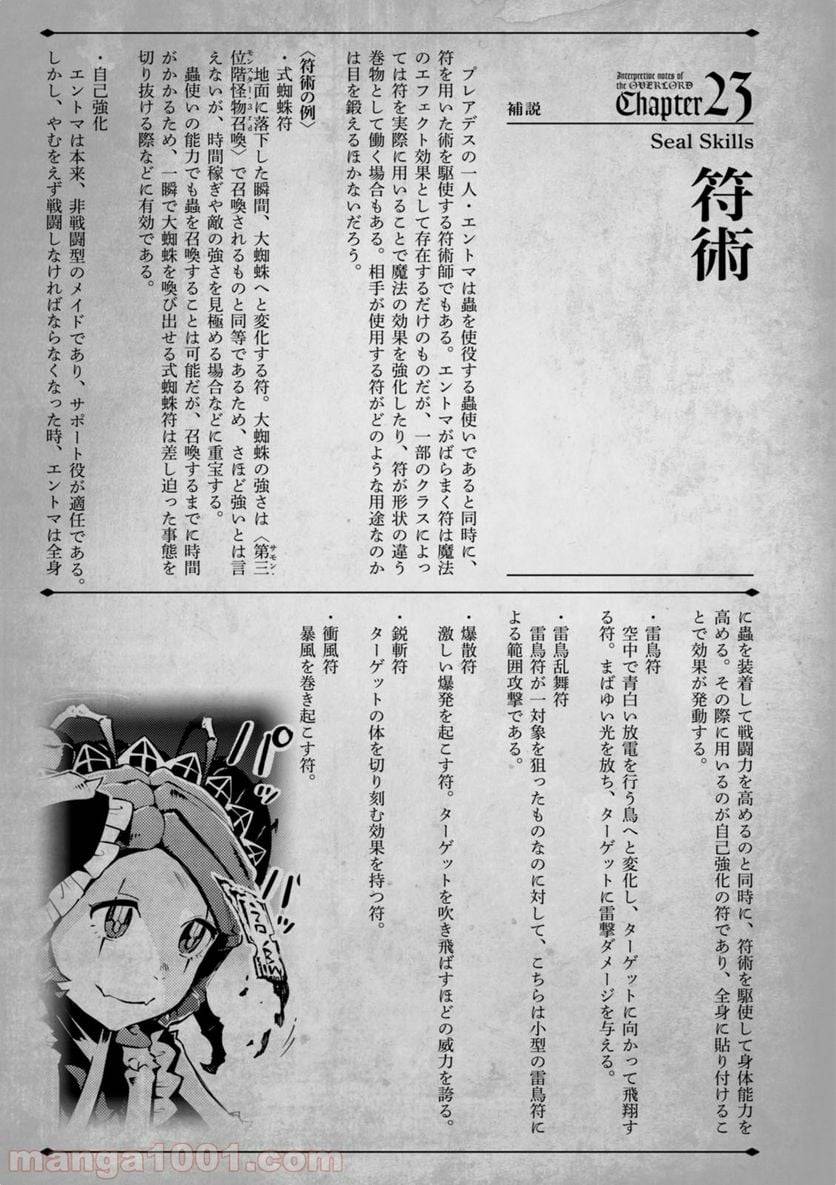 Interpretive notes of
the OVERLORD
Chapter 23
補説
Seal Skills
符術
プレアデスの一人・エントマは蟲を使役する蟲使いであると同時に、
符を用いた術を駆使する符術師でもある。エントマがばらまく符は魔法
のエフェクト効果として存在するだけのものだが、一部のクラスによっ
ては符を実際に用いることで魔法の効果を強化したり、符が形状の違う
巻物として働く場合もある。相手が使用する符がどのような用途なのか
は目を鍛えるほかないだろう。
〈符術の例〉
・式蜘蛛符
地面に落下した瞬間、大蜘蛛へと変化する符。大蜘蛛の強さは〈第三
サモン・
位階怪物召喚〉で召喚されるものと同等であるため、さほど強いとは言
モンスター・3rd
えないが、時間稼ぎや敵の強さを見極める場合などに重宝する。
蟲使いの能力でも蟲を召喚することは可能だが、召喚するまでに時間
がかかるため、一瞬で大蜘蛛を喚び出せる式蜘蛛符は差し迫った事態を
切り抜ける際などに有効である。
・自己強化
エントマは本来、非戦闘型のメイドであり、サポート役が適任である。
しかし、やむをえず戦闘しなければならなくなった時、エントマは全身
に蟲を装着して戦闘力を高めるのと同時に、符術を駆使して身体能力を
高める。その際に用いるのが自己強化の符であり、全身に貼り付けるこ
とで効果が発動する。
・雷鳥符
空中で青白い放電を行う鳥へと変化し、ターゲットに向かって飛翔す
る符。まばゆい光を放ち、ターゲットに雷撃ダメージを与える。
・雷鳥乱舞符
雷鳥符が一対象を狙ったものなのに対して、こちらは小型の雷鳥符に
よる範囲攻撃である。
・爆散符
激しい爆発を起こす符。ターゲットを吹き飛ばすほどの威力を誇る。
・鋭斬符
ターゲットの体を切り刻む効果を持つ符。
・衝風符
暴風を巻き起こす符。
パ
manga1001.com